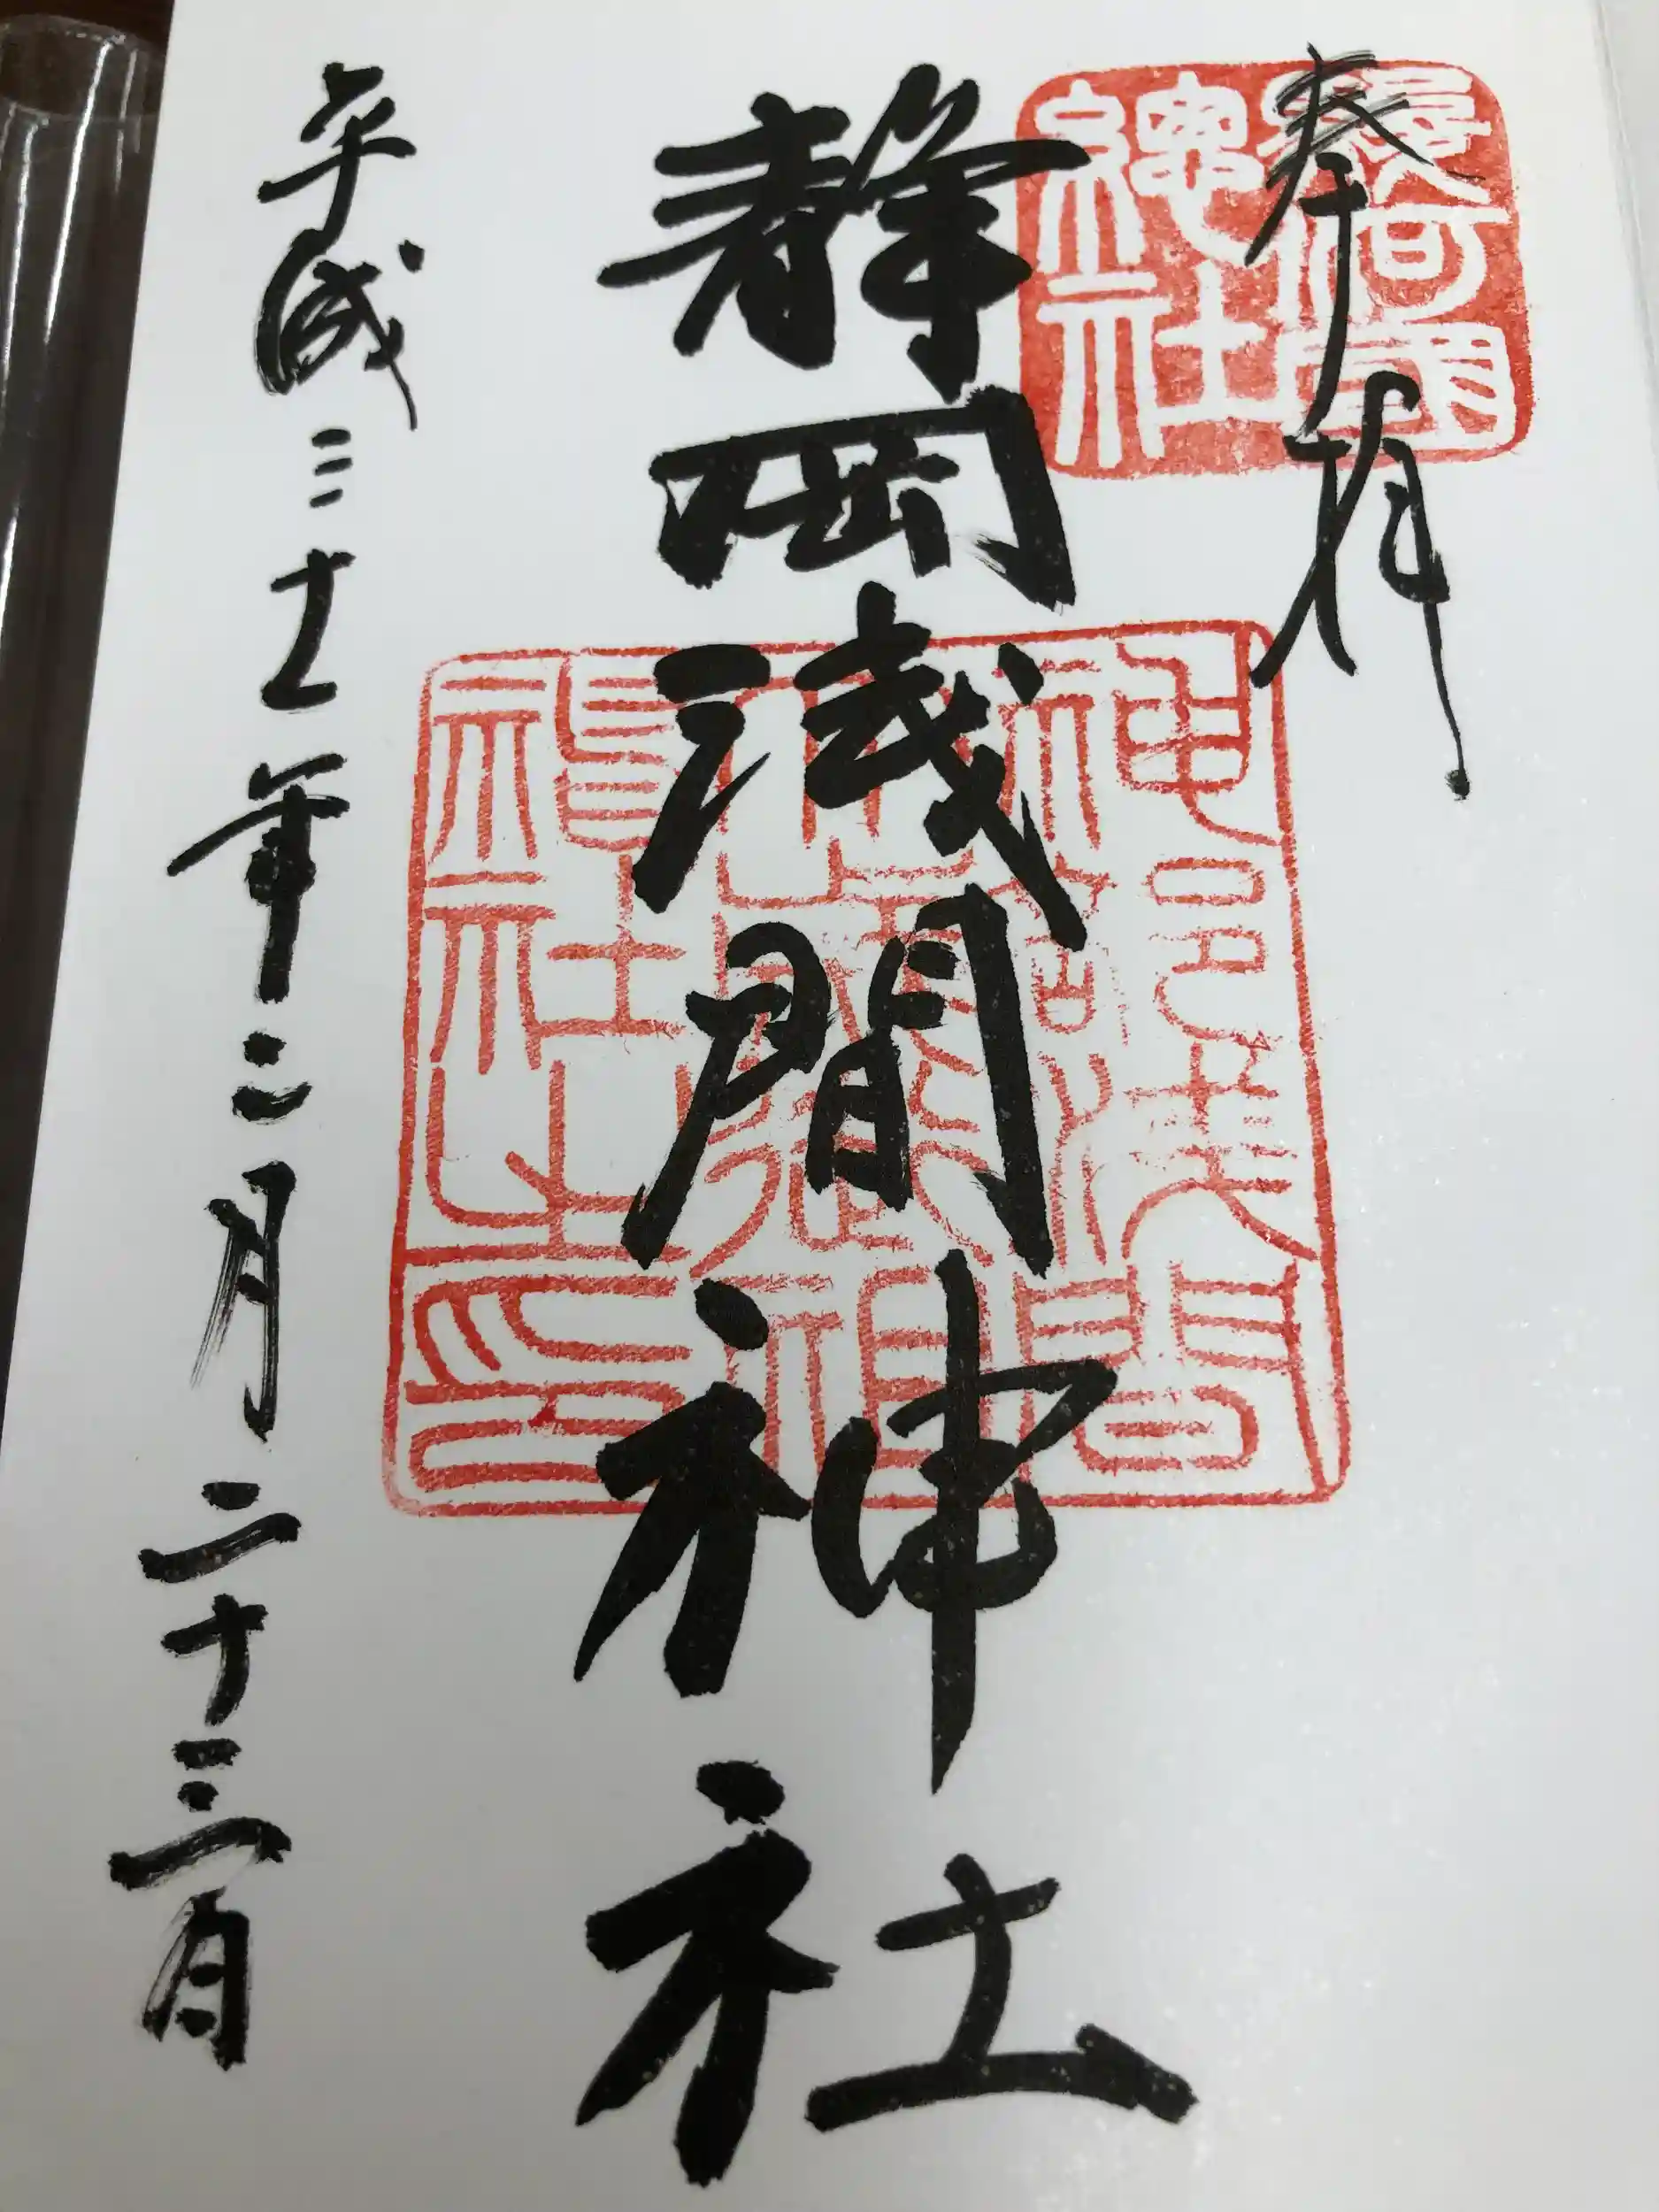 奉拝
駿河國
總社
静岡浅間神社
神部浅間
大歳御祖
神社之印
平成三十一年二月二十三日